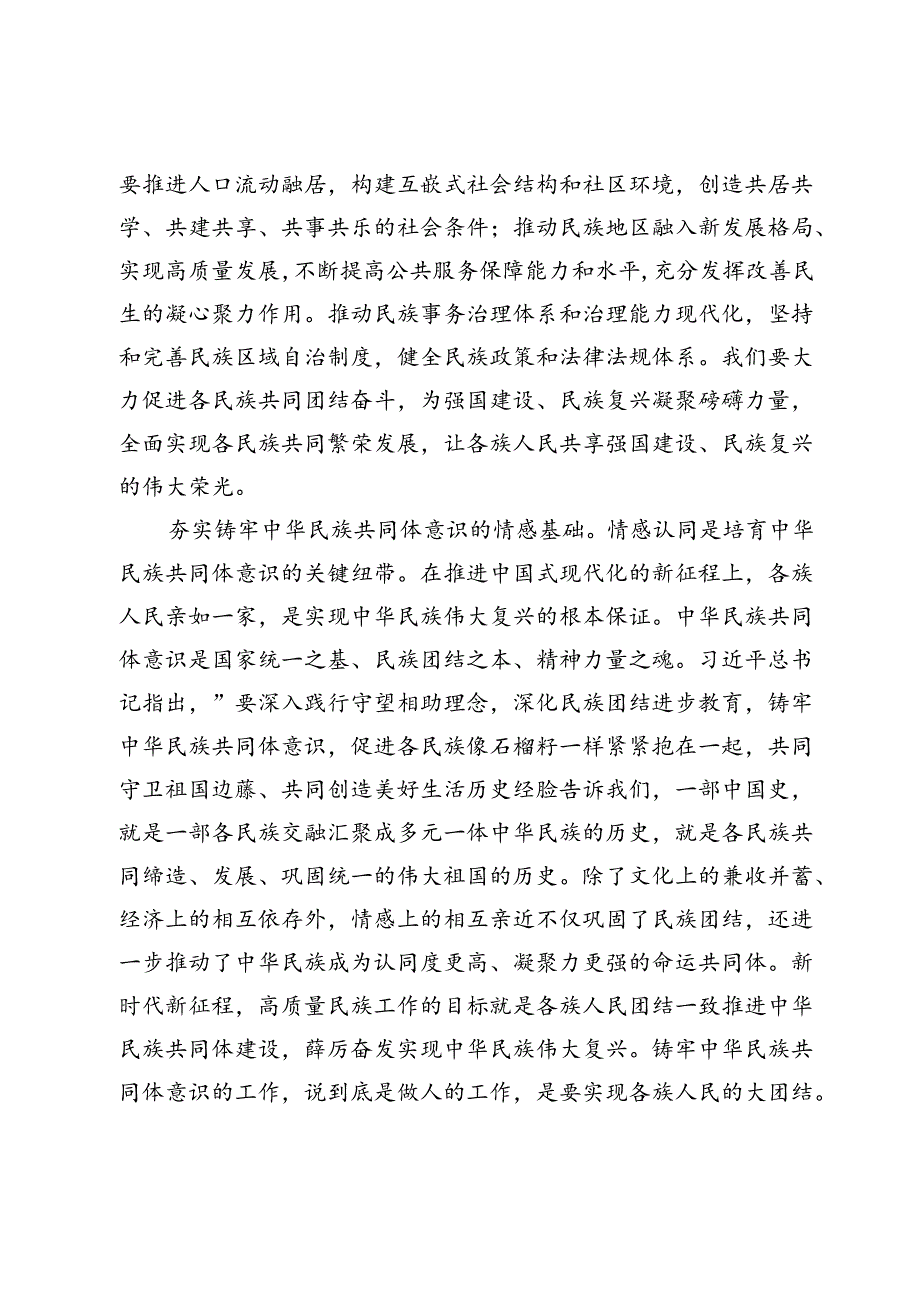 要推进人口流动融居，构建互嵌式社会结构和社区环境，创造共居共
学、共建共享、共事共乐的社会条件；推动民族地区融入新发展格局、
实现高质量发展,不断提高公共服务保障能力和水平,充分发挥改善民
生的凝心聚力作用。推动民族事务治理体系和治理能力现代化，坚持
和完善民族区域自治制度，健全民族政策和法律法规体系。我们要大
力促进各民族共同团结奋斗，为强国建设、民族复兴凝聚磅礴力量，
全面实现各民族共同繁荣发展，让各族人民共享强国建设、民族复兴
的伟大荣光。
夯实铸牢中华民族共同体意识的情感基础。情感认同是培育中华
民族共同体意识的关键纽带。在推进中国式现代化的新征程上，各族
人民亲如一家，是实现中华民族伟大复兴的根本保证。中华民族共同
体意识是国家统一之基、民族团结之本、精神力量之魂。习近平总书
记指出，”要深入践行守望相助理念，深化民族团结进步教育，铸牢
中华民族共同体意识，促进各民族像石榴籽一样紧紧抱在一起，共同
守卫祖国边藤、共同创造美好生活历史经验告诉我们，一部中国史，
就是一部各民族交融汇聚成多元一体中华民族的历史，就是各民族共
同缔造、发展、巩固统一的伟大祖国的历史。除了文化上的兼收并蓄、
经济上的相互依存外，情感上的相互亲近不仅巩固了民族团结，还进
一步推动了中华民族成为认同度更高、凝聚力更强的命运共同体。新
时代新征程，高质量民族工作的目标就是各族人民团结一致推进中华
民族共同体建设，薛厉奋发实现中华民族伟大复兴。铸牢中华民族共
同体意识的工作，说到底是做人的工作，是要实现各族人民的大团结。